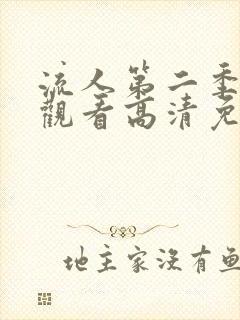 流人第二季
觀看高清免
地主家沒有魚